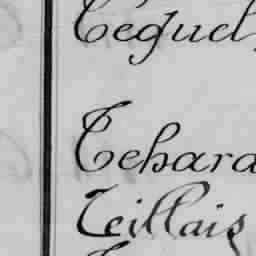 Teguel
Tehard
Teillais